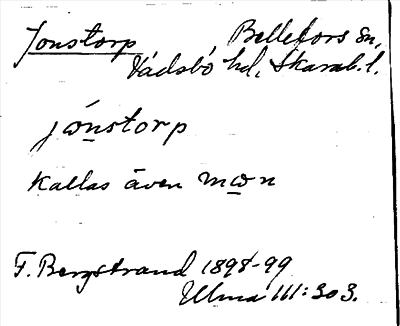 Jonstorp Bellefors sn,
Vadsbo hd, Skarab. l.
jɷ́nstorp
Kallas även mɷn
F. Bergstrand 1898-99
Ulma 111:303.